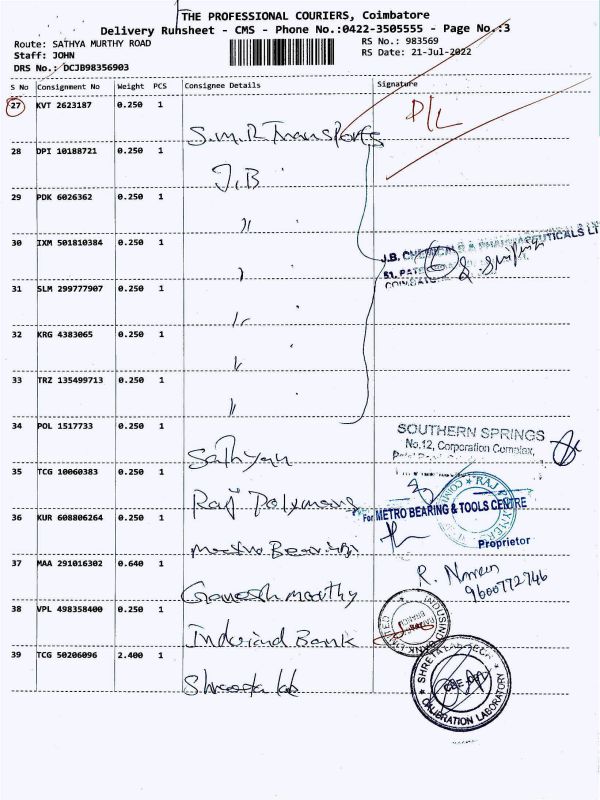 THE PROFESSIONAL COURIERS, Coimbatore
Delivery Runsheet - CMS - Phone No.:0422-3505555 - Page No.:3
Route: SATHYA MURTHY ROAD
RS No.: 983569
Staff: JOHN
RS Date: 21-Jul-2022
DRS No.: DCJB98356903
S No Consignment No Weight PCS Consignee Details Signature
27 KVT 2623187 0.250 1
D/L
S.M.R Transports
28 DPI 10188721 0.250 1
J.B
29 PDK 6026362 0.250 1
30 IXM 501810384 0.250 1
J.B. CHEMICALS & PHARMACEUTICALS LT
51,
COIMBATORE
31 SLM 299777907 0.250 1
32 KRG 4383065 0.250 1
33 TRZ 135499713 0.250 1
34 POL 1517733 0.250 1
SOUTHERN SPRINGS
No.12, Corporation Complex,
Sathyan
35 TCG 10060383 0.250 1
Raj Polymers
RAJ POLYMERS
For METRO BEARING & TOOLS CENTRE
Proprietor
36 KUR 608806264 0.250 1
Metro Bearings
37 MAA 291016302 0.640 1
R. Naveen
9600772746
Ganesh moorthy
38 VPL 498358400 0.250 1
INDUSIND BANK LIMITED
BRANCH
Indusind Bank
39 TCG 50206096 2.400 1
Shreeta lab
SHREETA LAB TECH
CBE
CALIBRATION LABORATORY